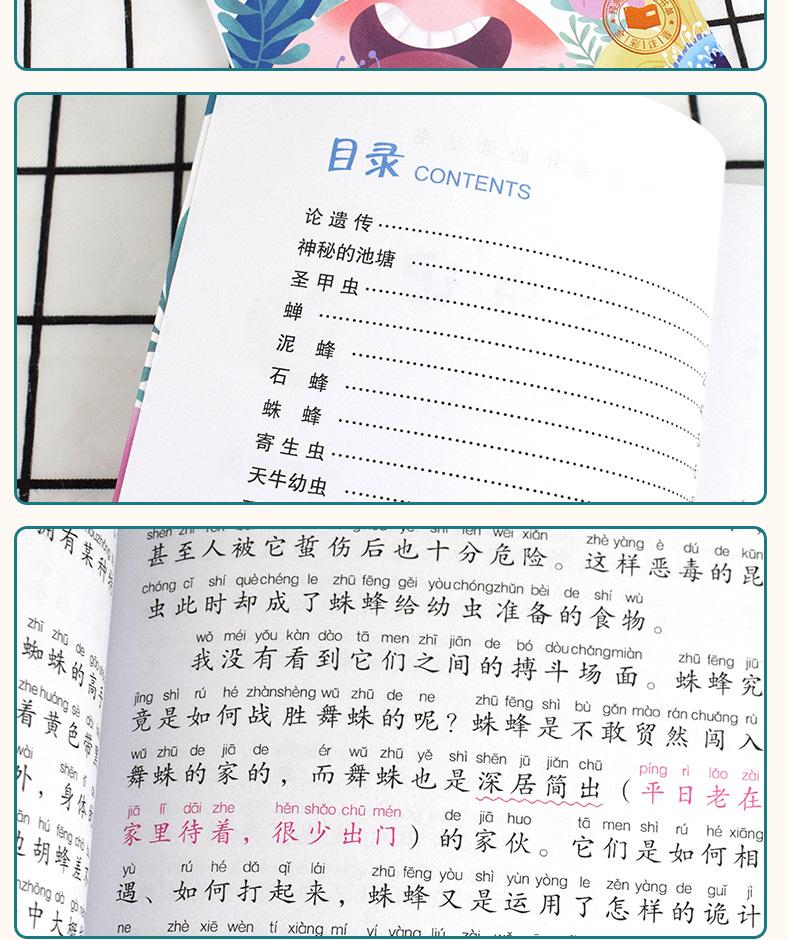 全|彩|注|音
目录 CONTENTS
论遗传
神秘的池塘
圣甲虫
蝉
泥蜂
石蜂
蛛蜂
寄生虫
天牛幼虫
拥有某种
zhī zhū de gāo
蜘蛛的高手
zhe huáng sè dài
着黄色带
wài shēn
外，身体
胡蜂差
中大
甚至人被它蜇伤后也十分危险。这样恶毒的昆
zhè yàng è dú de kūn
chóng cǐ shí què chéng le zhū fēng gěi yòu chóng zhǔn bèi de shí wù
虫此时却成了蛛蜂给幼虫准备的食物。
wǒ méi yǒu kàn dào tā men zhī jiān de bó dòu chǎng miàn zhū fēng jiū
我没有看到它们之间的搏斗场面。蛛蜂究
jìng shì rú hé zhàn shèng wǔ zhū de ne zhū fēng shì bù gǎn mào rán chuǎng rù
竟是如何战胜舞蛛的呢？蛛蜂是不敢贸然闯入
wǔ zhū de jiā de ér wǔ zhū yě shì shēn jū jiǎn chū píng rì lǎo zài
舞蛛的家的，而舞蛛也是深居简出（平日老在
jiā lǐ dāi zhe hěn shǎo chū mén de jiā huo tā men shì rú hé xiāng
家里待着，很少出门）的家伙。它们是如何相
yù rú hé dǎ qǐ lái zhū fēng yòu shì yùn yòng le zěn yàng de guǐ jì
遇、如何打起来，蛛蜂又是运用了怎样的诡计
ne zhè xiē wèn tí xiàng mí